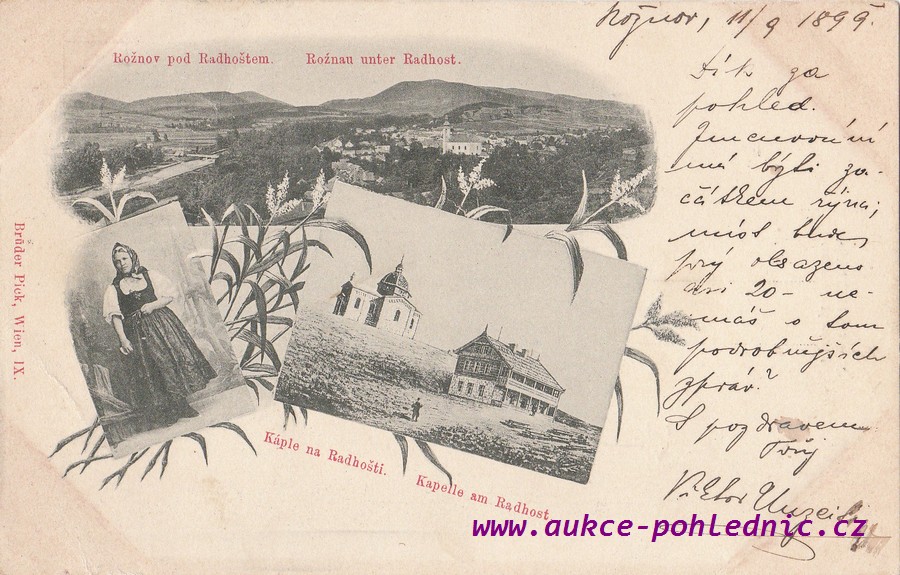 Rožnov, 11/9 1899.
Rožnov pod Radhoštem. Rožnau unter Radhost.
Dík za
pohled.
Jmenování
má býti za-
čátkem října;
míst bude
prý obsazeno
asi 20 – ne-
máš o tom
podrobnějších
zpráv?
S pozdravem
Tvůj
Viktor
Brüder Pick, Wien, IX.
Káple na Radhošti.
Kapelle am Radhost
www.aukce-pohlednic.cz